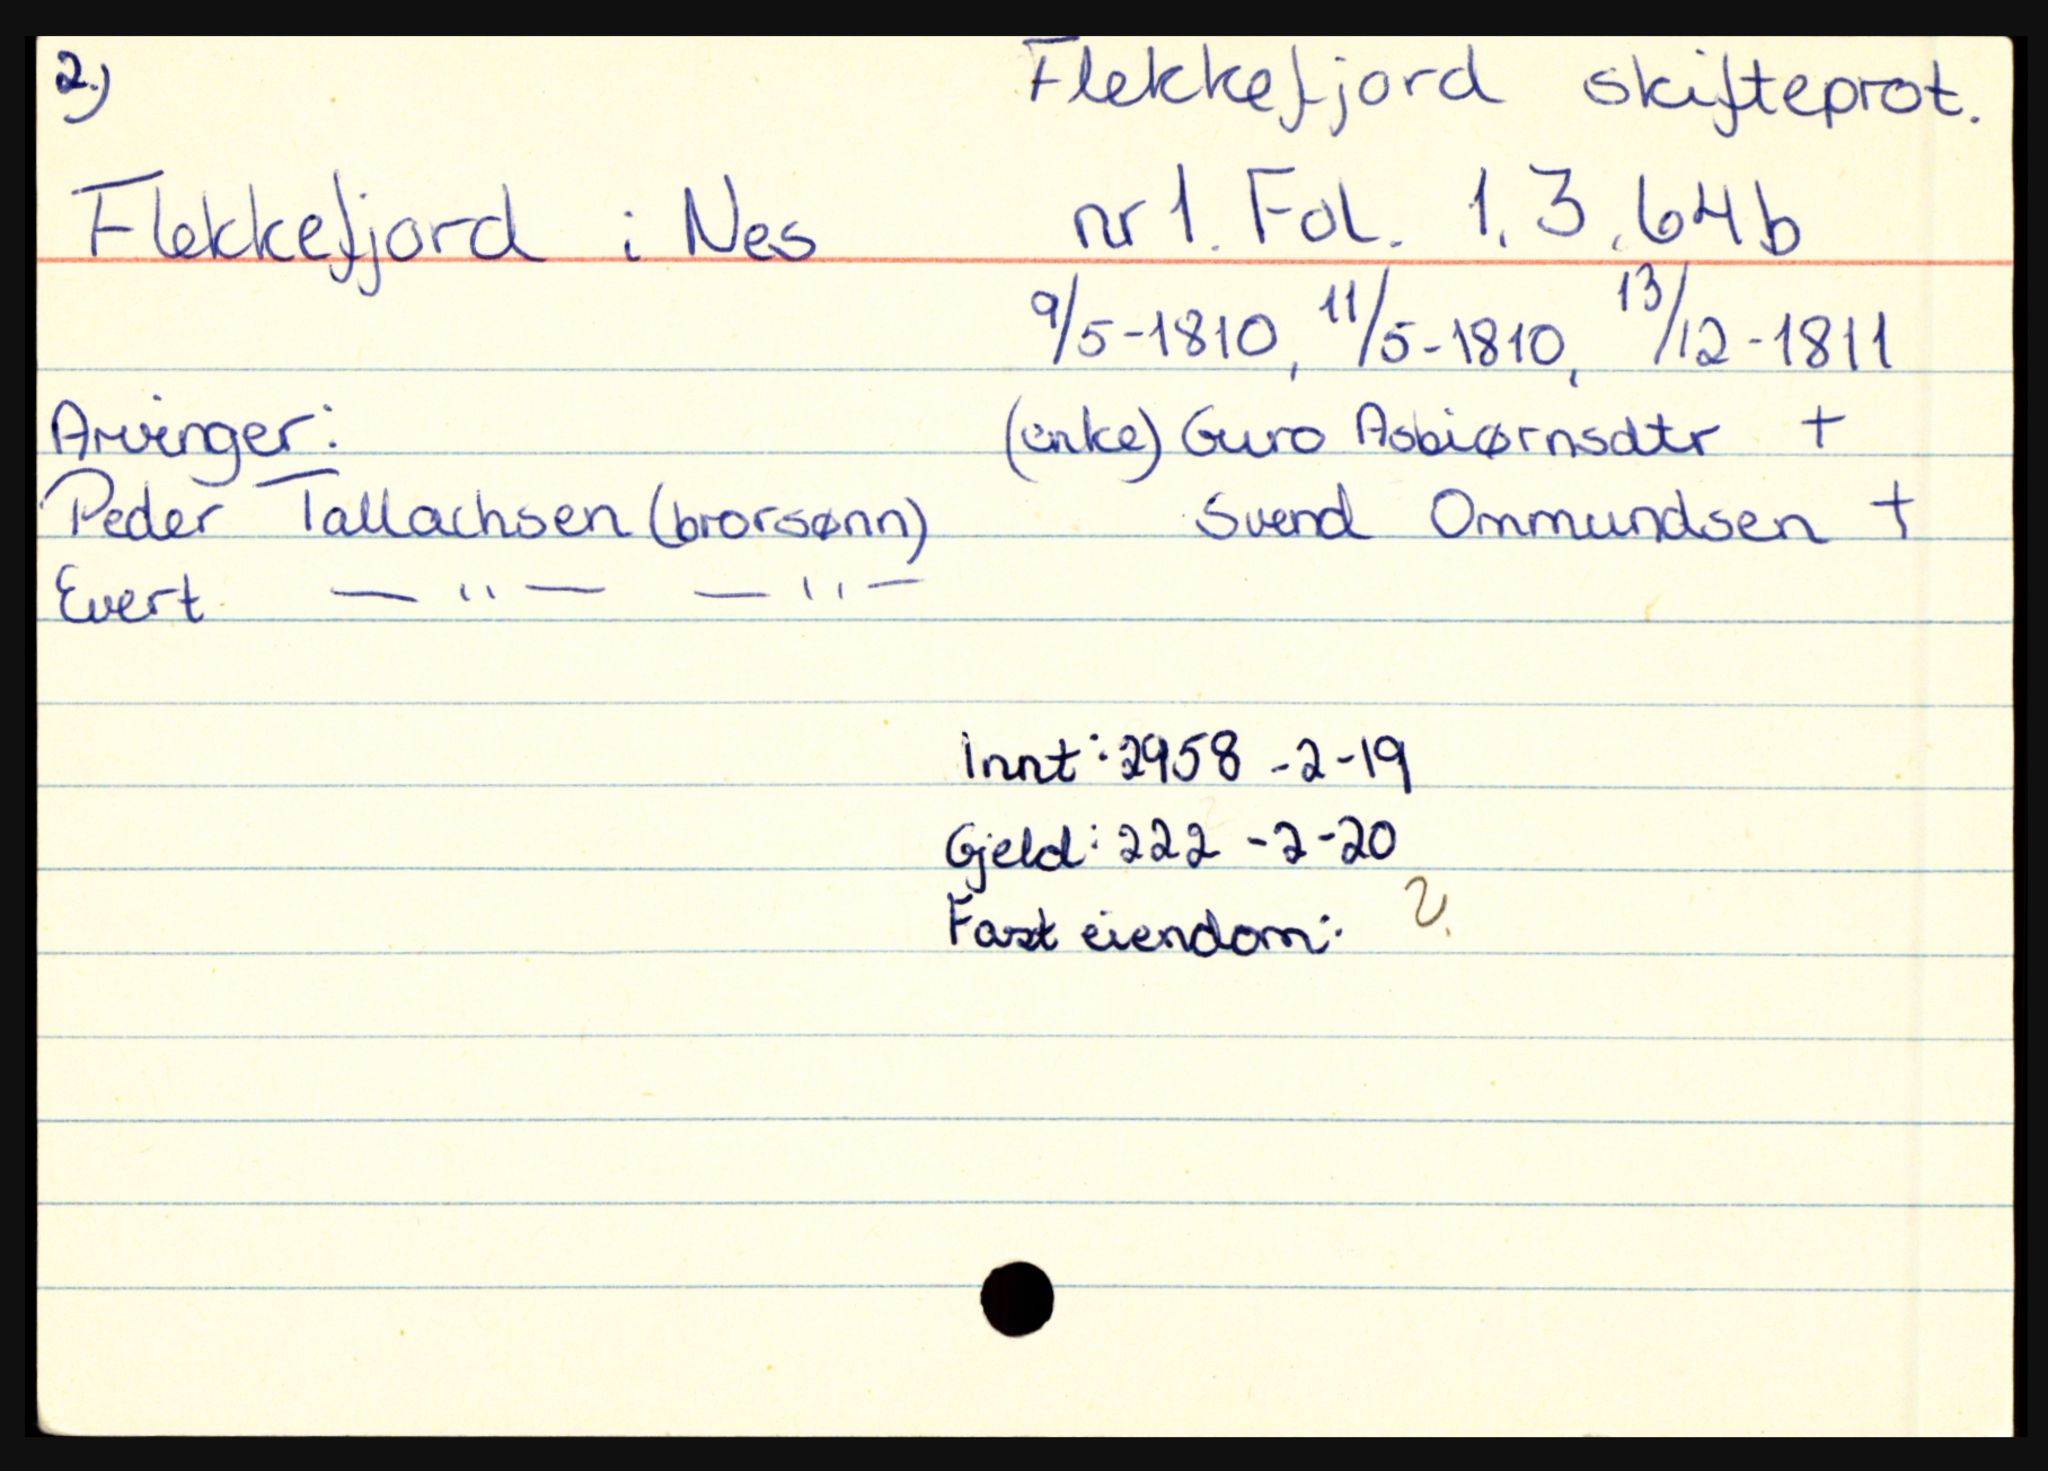 2.)
Flekkefjord skifteprot.
Flekkefjord i Nes
nr 1. Fol. 1, 3, 64b
9/5-1810, 11/5-1810, 13/12-1811
Arvinger:
(enke) Guro Asbiørnsdtr +
Peder Tallachsen (brorsønn)
Svend Ommundsen +
Evert — " — — " —
Innt: 2958 - 2 - 19
Gjeld: 222 - 2 - 20
Fast eiendom: ?